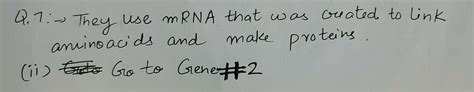 Q.7:→ They use mRNA that was created to link
aminoacids and make proteins.
(ii) Go to Gene#2